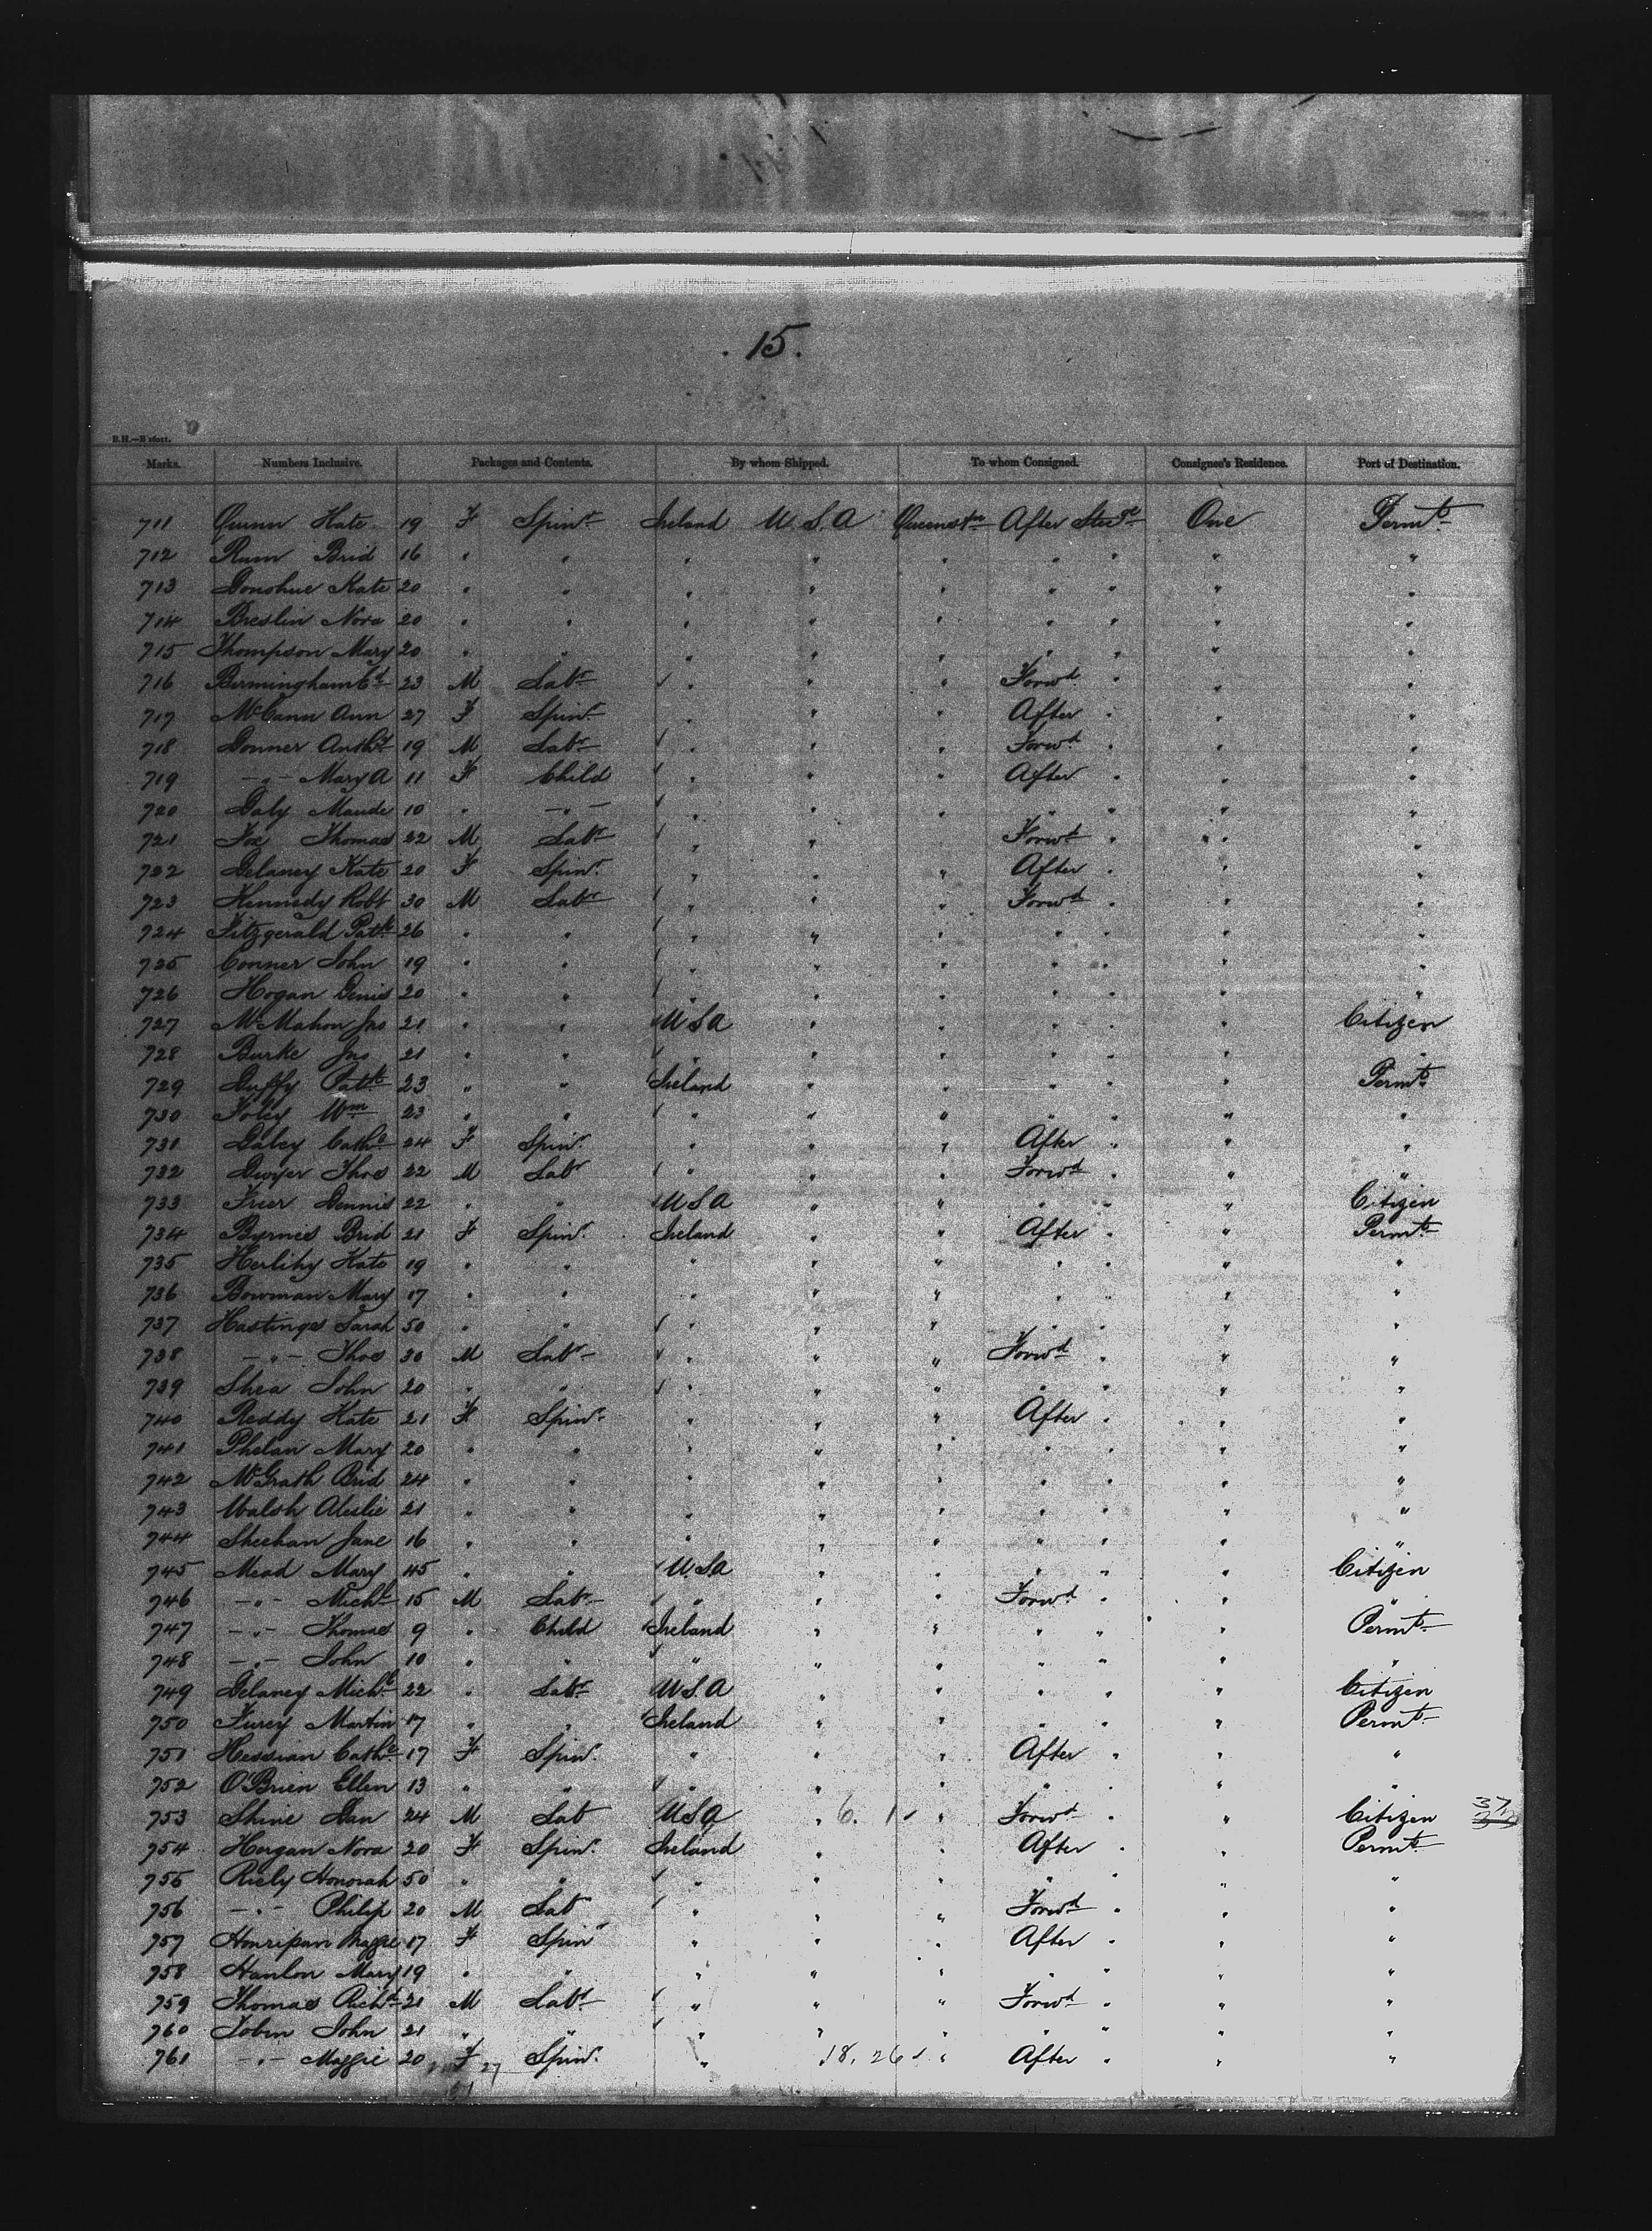 . 15.
Marks. Numbers Inclusive. Packages and Contents. By whom Shipped. To whom Consigned. Consignee's Residence. Port of Destination.
711 Quinn Kate 19 F Spinr Ireland U.S.A Queenstn After Steerge One Permt
712 Brid 16 " " " " " " " " "
713 Donohue Kate 20 " " " " " " " " "
714 Breslin Nora 20 " " " " " " " " "
715 Thompson Mary 20 " " " " " " " " "
716 Bermingham 23 M Labr " " " Forwd " " "
717 McCann Ann 27 F Spinr " " " After " " "
718 Donner Anthy 19 M Labr " " " Forwd " " "
719 -"- Mary A 11 F Child " " " After " " "
720 Daly Maude 10 " -"- " " " " " " "
721 Fox Thomas 22 M Labr " " " Forwd " " "
722 Delaney Kate 20 F Spinr " " " After " " "
723 Kennedy Robt 30 M Labr " " " Forwd " " "
724 Fitzgerald Patk 26 " " " " " " " " "
725 Conner John 19 " " " " " " " " "
726 Hogan Denis 20 " " " " " " " " "
727 McMahon Jno 21 " " USA " " " " " Citizen
728 Burke Jno 21 " " " " " " " " "
729 Duffy Patk 23 " " Ireland " " " " " Permt
730 Foley Wm 23 " " " " " " " " "
731 Cathe 24 F Spinr " " " After " " "
732 Dwyer Thos 22 M Labr " " " Forwd " " "
733 Dennis 22 " " USA " " " " " Citizen
734 Byrnes Brid 21 F Spinr Ireland " " After " " Permt
735 Herlihy Kate 19 " " " " " " " " "
736 Bowman Mary 17 " " " " " " " " "
737 Hastings Sarah 50 " " " " " " " " "
738 -"- Thos 30 M Labr " " " Forwd " " "
739 Shea John 20 " " " " " " " " "
740 Reddy Kate 21 F Spinr " " " After " " "
741 Phelan Mary 20 " " " " " " " " "
742 McGrath Brid 24 " " " " " " " " "
743 Walsh 21 " " " " " " " " "
744 Sheehan Jane 16 " " " " " " " " "
745 Mead Mary 45 " " USA " " " " " Citizen
746 -"- Michl 15 M Labr " " " Forwd " " "
747 -"- Thomas 9 " Child Ireland " " " " " Permt
748 -"- John 10 " " " " " " " " "
749 Delaney Michl 22 " Labr U.S.A " " " " " Citizen
750 Furey Martin 17 " " Ireland " " " " " Permt
751 Hessian Cathe 17 F Spinr " " " After " " "
752 O'Brien Ellen 13 " " " " " " " " "
753 Shine Dan 24 M Lab USA " 6. 1 " Forwd " " Citizen 37
754 Horgan Nora 20 F Spinr Ireland " " After " " Permt
755 Riely Honorah 50 " " " " " " " " "
756 -"- Philip 20 M Lab " " " Forwd " " "
757 Maggie 17 F Spinr " " " After " " "
758 Hanlon Mary 19 " " " " " " " " "
759 Thomas Richd 21 M Labr " " " Forwd " " "
760 Tobin John 21 " " " " " " " " "
761 -"- Maggie 20 F Spinr " 18. 26 " After " " "
27